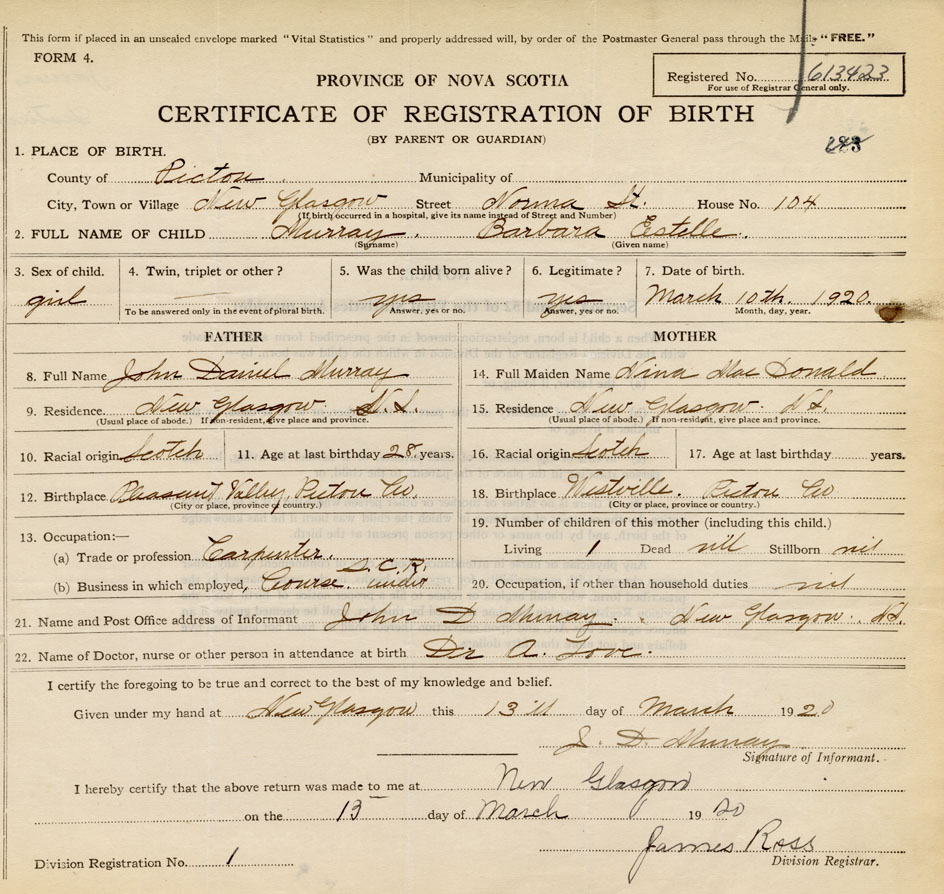 This form if placed in an unsealed envelope marked "Vital Statistics" and properly addressed will, by order of the Postmaster General pass through the Mails "FREE."
FORM 4.
Registered No. 613423
For use of Registrar General only.
PROVINCE OF NOVA SCOTIA
CERTIFICATE OF REGISTRATION OF BIRTH
(BY PARENT OR GUARDIAN)
1. PLACE OF BIRTH.
County of Picton Municipality of
City, Town or Village New Glasgow Street Norma St. House No. 104
(If birth occurred in a hospital, give its name instead of Street and Number)
2. FULL NAME OF CHILD Murray. Barbara Estelle.
(Surname) (Given name)
3. Sex of child. 4. Twin, triplet or other? 5. Was the child born alive? 6. Legitimate? 7. Date of birth.
girl — yes yes March 10th. 1920.
To be answered only in the event of plural birth. Answer, yes or no. Answer, yes or no. Month, day, year.
FATHER MOTHER
8. Full Name John Daniel Murray 14. Full Maiden Name Nina Mac Donald
9. Residence. New Glasgow N.S. 15. Residence New Glasgow. N.S.
(Usual place of abode.) If non-resident, give place and province. (Usual place of abode.) If non-resident, give place and province.
10. Racial origin Scotch 11. Age at last birthday 28 years. 16. Racial origin Scotch 17. Age at last birthday years.
12. Birthplace Pleasant Valley, Picton Co. 18. Birthplace Westville. Picton Co
(City or place, province or country.) (City or place, province or country.)
19. Number of children of this mother (including this child.)
13. Occupation:—
(a) Trade or profession Carpenter. Living 1 Dead nil Stillborn nil
S.C.R.
(b) Business in which employed, Course under 20. Occupation, if other than household duties nil
21. Name and Post Office address of Informant John D Murray. New Glasgow. N.S.
22. Name of Doctor, nurse or other person in attendance at birth Dr A. Love.
I certify the foregoing to be true and correct to the best of my knowledge and belief.
Given under my hand at New Glasgow this 13 day of March 1920
J. D. Murray
Signature of Informant.
I hereby certify that the above return was made to me at New Glasgow
on the 13 day of March 1920
James Ross
Division Registration No. 1 Division Registrar.